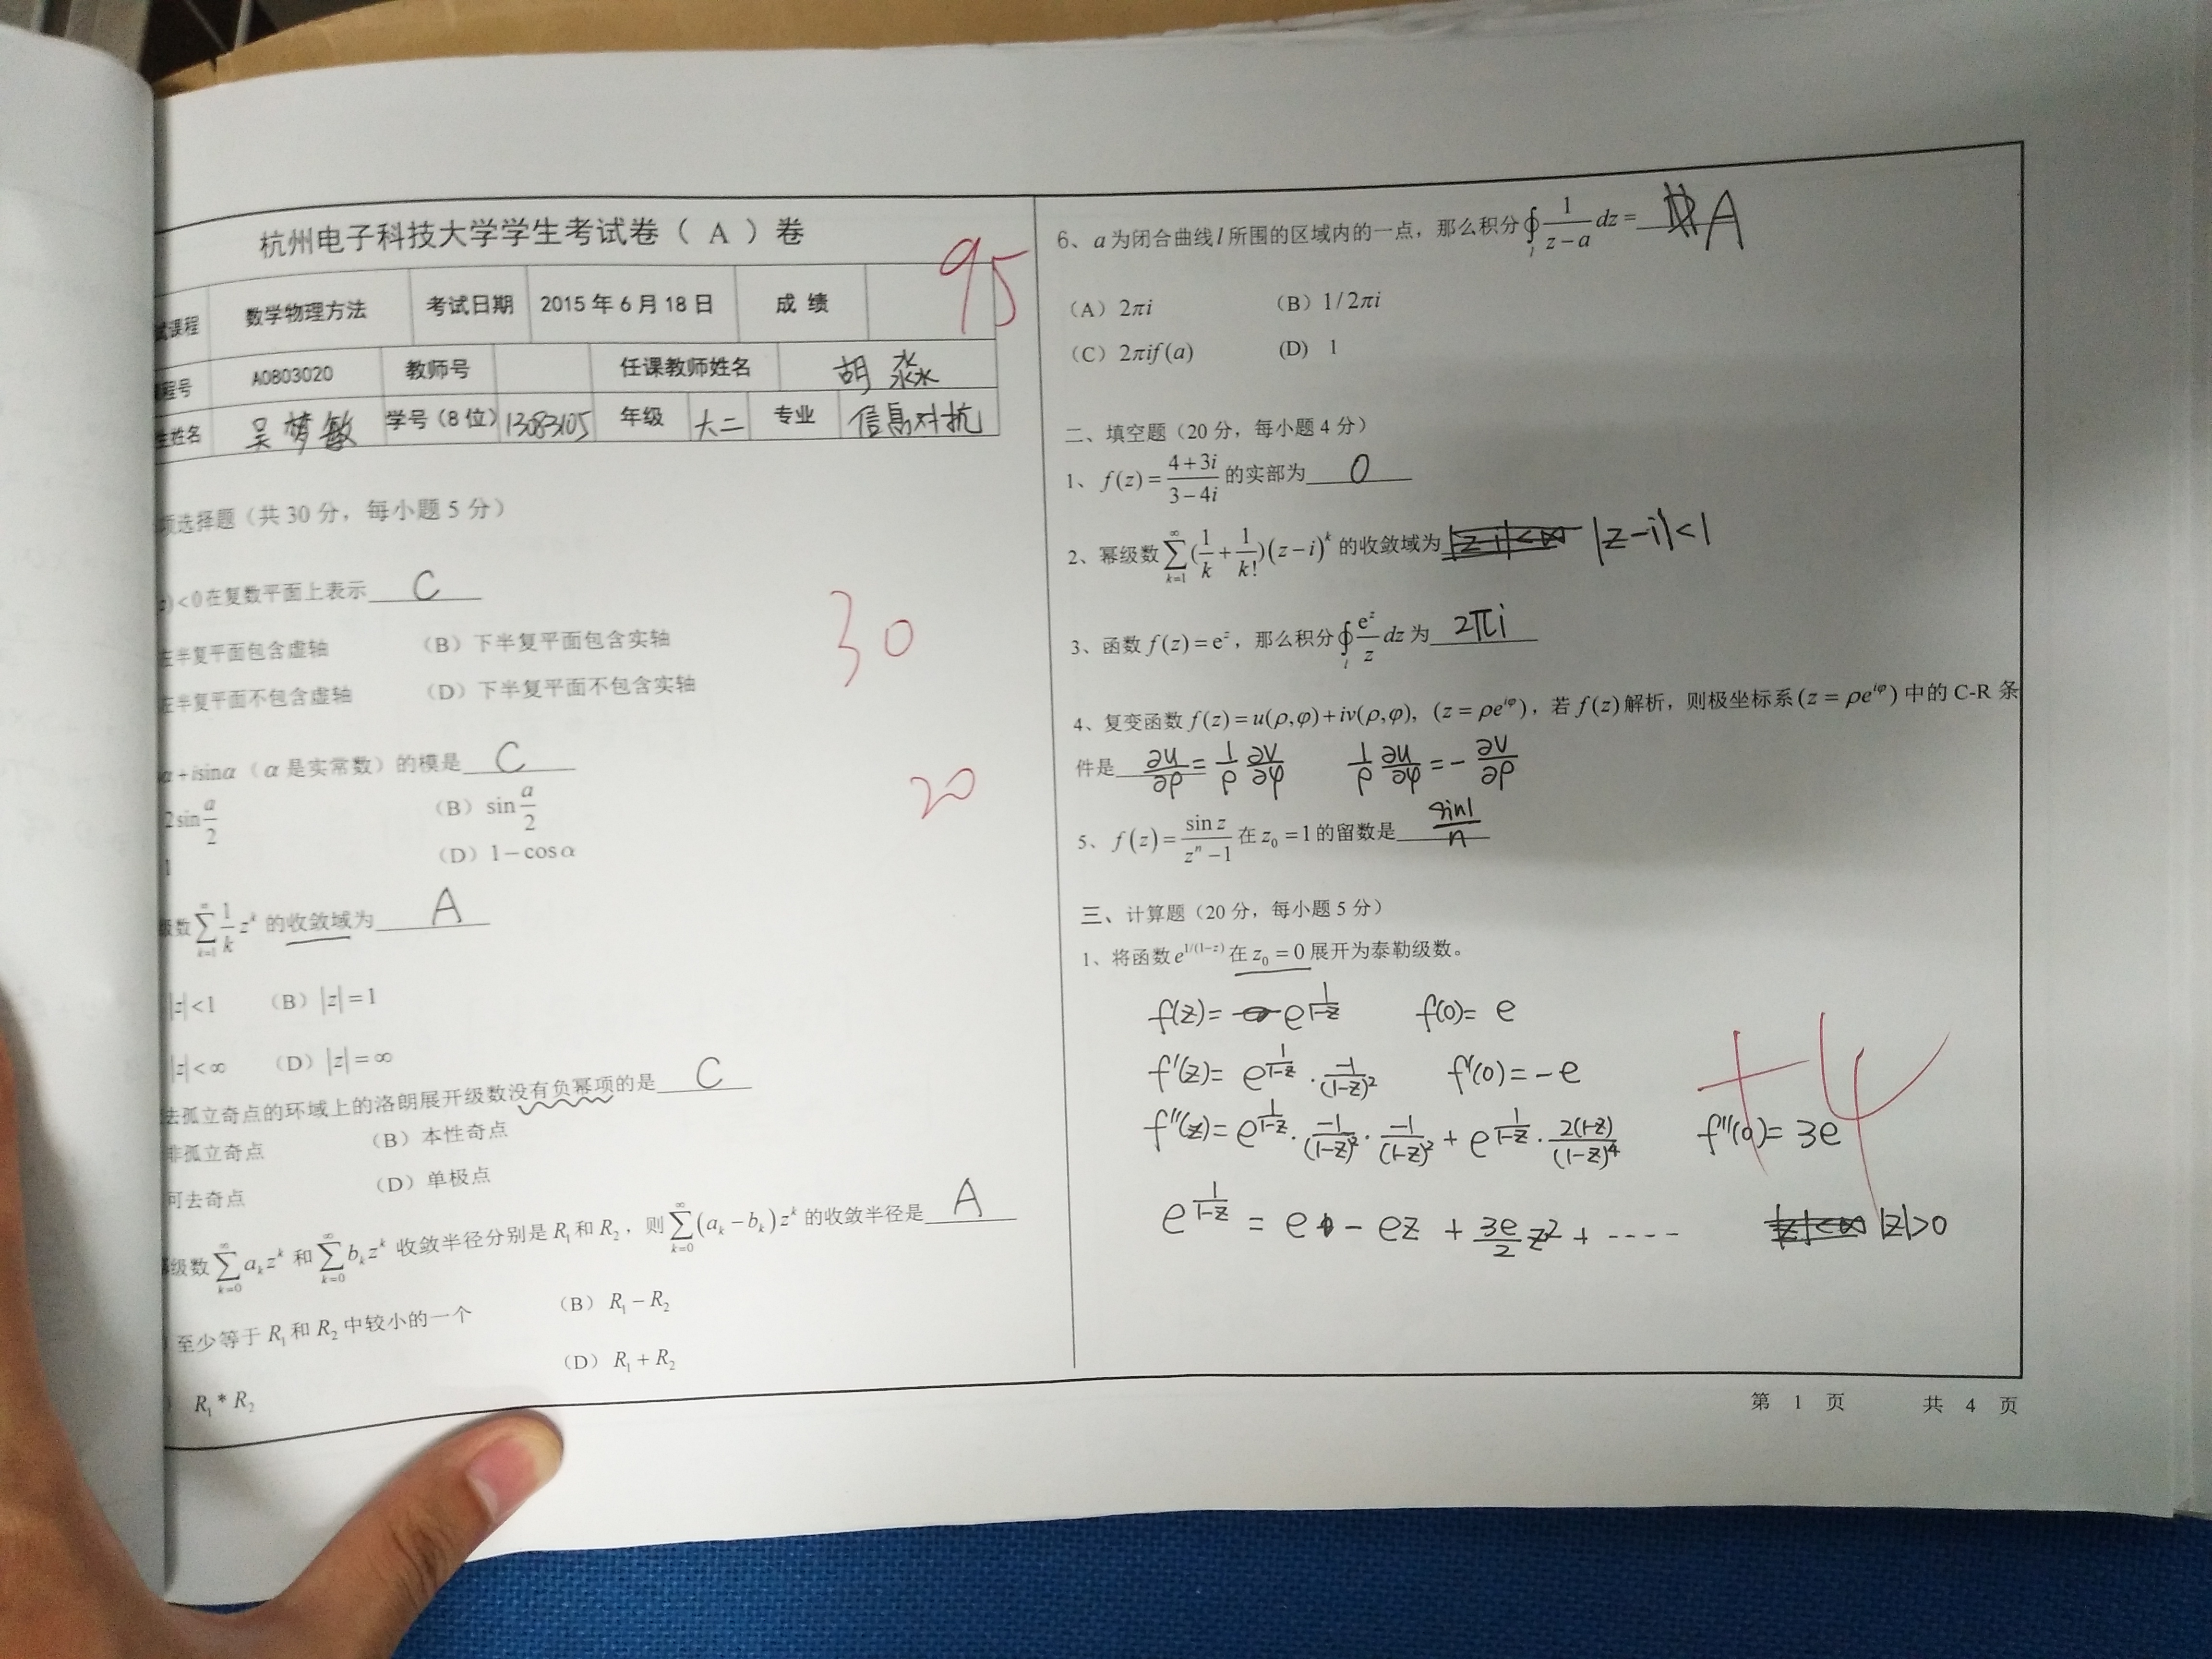 杭州电子科技大学学生考试卷（ A ）卷
试课程 数学物理方法 考试日期 2015 年 6 月 18 日 成 绩 95
程号 A0803020 教师号 任课教师姓名 胡淼
生姓名 吴梦敏 学号（8 位） 13083105 年级 大二 专业 信息对抗
项选择题（共 30 分，每小题 5 分）
)<0在复数平面上表示 C
左半复平面包含虚轴 （B）下半复平面包含实轴
左半复平面不包含虚轴 （D）下半复平面不包含实轴
30
α+isinα（α 是实常数）的模是 C
2 sin a/2 （B）sin a/2
1 （D）1－cosα
20
级数 ∑_{k=1}^{∞} 1/k z^k 的收敛域为 A
|z|<1 （B）|z|=1
|z|<∞ （D）|z|=∞
去孤立奇点的环域上的洛朗展开级数没有负幂项的是 C
非孤立奇点 （B）本性奇点
可去奇点 （D）单极点
级数 ∑_{k=0}^{∞} a_k z^k 和 ∑_{k=0}^{∞} b_k z^k 收敛半径分别是 R₁和 R₂，则 ∑_{k=0}^{∞} (a_k − b_k) z^k 的收敛半径是 A
至少等于 R₁和 R₂ 中较小的一个 （B）R₁－R₂
R₁ * R₂ （D）R₁＋R₂
6、a 为闭合曲线 l 所围的区域内的一点，那么积分 ∮_l 1/(z−a) dz = A
（A）2πi （B）1/2πi
（C）2πif(a) (D) 1
二、填空题（20 分，每小题 4 分）
1、f(z)=(4+3i)/(3−4i) 的实部为 0
2、幂级数 ∑_{k=1}^{∞} (1/k + 1/k!)(z−i)^k 的收敛域为 |z−i|<1
3、函数 f(z)=e^z，那么积分 ∮_l e^z/z dz 为 2πi
4、复变函数 f(z)=u(ρ,φ)+iv(ρ,φ), (z=ρe^{iφ})，若 f(z) 解析，则极坐标系（z=ρe^{iφ}）中的 C-R 条
件是 ∂u/∂ρ = 1/ρ ∂v/∂φ 1/ρ ∂u/∂φ = − ∂v/∂ρ
5、f(z)= sin z/(z^n −1) 在 z₀=1 的留数是 sin1/n
三、计算题（20 分，每小题 5 分）
1、将函数 e^{1/(1−z)} 在 z₀=0 展开为泰勒级数。
f(z)= e^{1/(1−z)} f(0)= e
f'(z)= e^{1/(1−z)} · −1/(1−z)² f'(0)= −e
f''(z)= e^{1/(1−z)} · −1/(1−z)² · −1/(1−z)² + e^{1/(1−z)} · 2(1−z)/(1−z)⁴ f''(0)= 3e
+4
e^{1/(1−z)} = e − ez + 3e/2 z² + ---- |z|>0
第 1 页 共 4 页